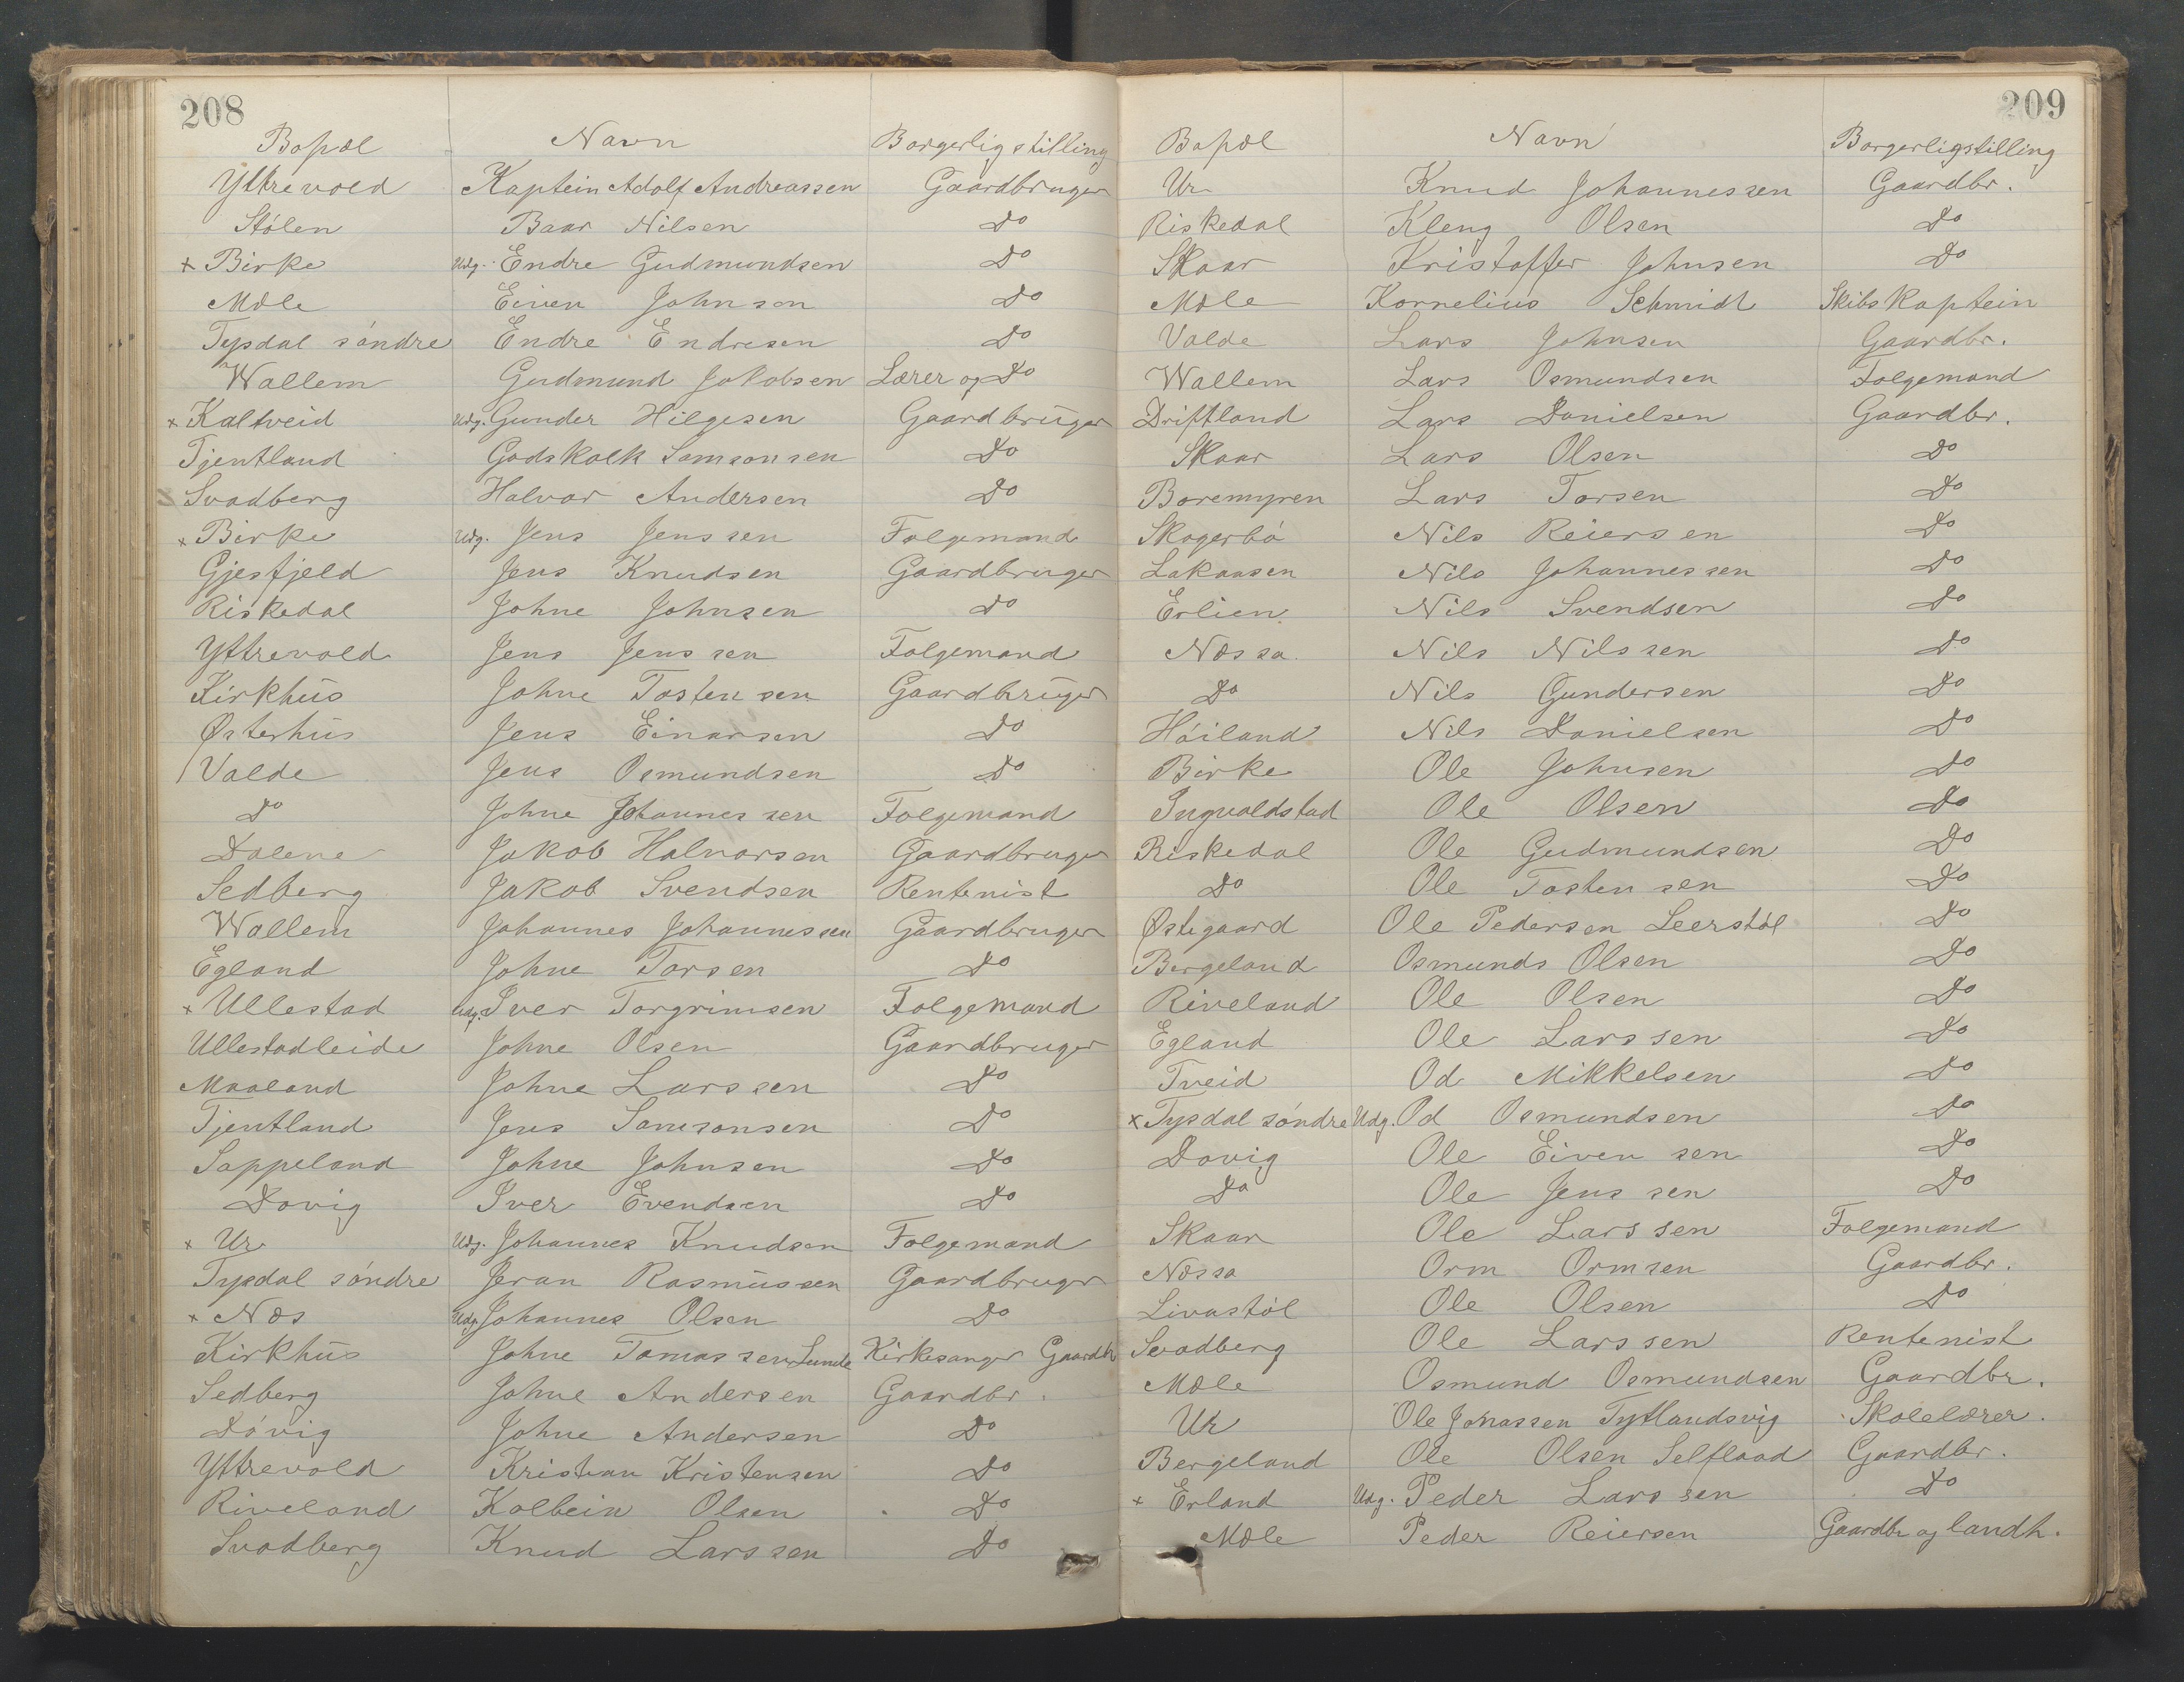 208
Bopæl Navn Borgerligstilling
Yttrevold Kaptein Adolf Andreassen Gaardbruger
Stólen Baar Nilsen Do
x Birke Udg. Endre Gudmundsen Do
Mæle Eiven Johnsen Do
Tysdal sóndre Endre Endresen Do
Wallem Gudmund Jakobsen Lærer og Do
x Kaltveid Udg. Gunder Hilgesen Gaardbrüger
Tjentland Godskalk Samsonsen Do
Svadberg Halvar Andersen Do
x Birke Udg. Jens Jenssen Folgemand
Gjesfjeld Jens Knudsen Gaardbruger
Riskedal Johne Johnsen Do
Yttrevold Jens Jenssen Folgemand
Kirkhüs Johne Tostensen Gaardbrüger
Østerhüs Jens Einarsen Do
Valde Jens Osmundsen Do
Do Johne Johannessen Folgemand
Dalene Jakob Halvarsen Gaardbruger
Sedberg Jakob Svendsen Rentenist
Wallem Johannes Johannessen Gaardbruger
Egland Johne Torsen Do
x Ullestad Udg. Iver Torgrimsen Folgemand
Ullestadleide Johne Olsen Gaardbruger
Maaland Johne Larssen Do
Tjentland Jens Samsonsen Do
Sappeland Johne Johnsen Do
Dovig Iver Evendsen Do
x Ur Udg. Johannes Knudsen Folgemand
Tysdal sóndre Jeran Rasmüssen Gaardbruger
x Næs Udg Johannes Olsen Do
Kirkhüs Johne Tomassen Lunde Kirkesanger Gaardb
Sedberg Johne Andersen Gaardbr.
Dóvig Johne Andersen Do
Yttrevold Kristian Kristensen Do
Riveland Kolbein Olsen Do
Svadberg Knud Larssen Do
209
Bopæl Navn Borgerligstilling
Ur Knud Johannessen Gaardbr.
Riskedal Kleng Olsen Do
Skaar Kristoffer Johnsen Do
Mæle Kornelius Schmidt Skibskaptein
Valde Lars Johnsen Gaardbr.
Wallem Lars Osmundsen Folgemand
Driftland Lars Danielsen Gaardbr.
Skaar Lars Olsen Do
Boremyren Lars Torsen Do
Skogerbó Nils Reiersen Do
Lakaasen Nils Johannessen Do
Erlien Nils Svendsen Do
Næssa Nils Nilssen Do
Do Nils Gundersen Do
Hóiland Nils Danielsen Do
Birke Ole Johnsen Do
Ingvaldstad Ole Olsen Do
Riskedal Ole Gudmundsen Do
Do Ole Tostensen Do
Østegaard Ole Pedersen Leerstól Do
Bergeland Osmunds Olsen Do
Riveland Ole Olsen Do
Egland Ole Larssen Do
Tveid Od Mikkelsen Do
x Tysdal sóndre Udg. Od Osmundsen Do
Dovig Ole Eivensen Do
Do Ole Jenssen Do
Skaar Ole Larssen Folgemand
Næssa Orm Ormsen Gaardbr.
Livastól Ole Olsen Do
Svadberg Ole Larssen Rentenist
Mæle Osmund Osmundsen Gaardbr.
Ur Ole Jonassen Tytlandsvig Skolelærer.
Bergeland Ole Olsen Selflaad Gaardbr.
x Erland Udg. Peder Larssen Do
Mæle Peder Reiersen Gaardbr og landh.